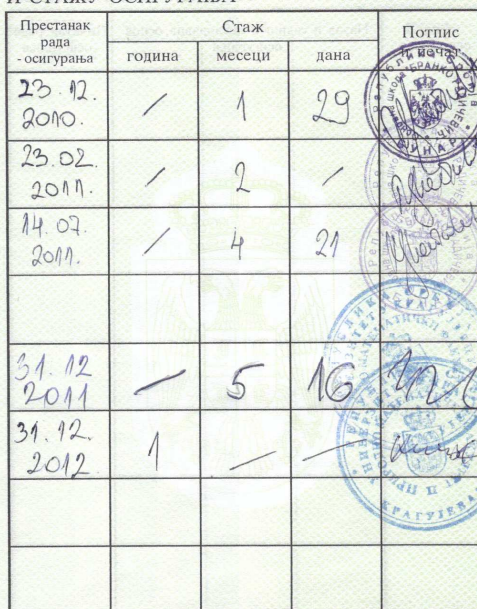 И СТАЖУ ОСИГУРАЊА
Престанак
рада
- осигурања
Стаж
Потпис
година
месеци
дана
и печат
23.12.
2010.
/
1
29
23.02.
2011.
/
2
/
14.07.
2011.
/
4
21
31.12
2011
—
5
16
31.12.
2012
1
—
—
БУНАР
КРАГУЈЕВА